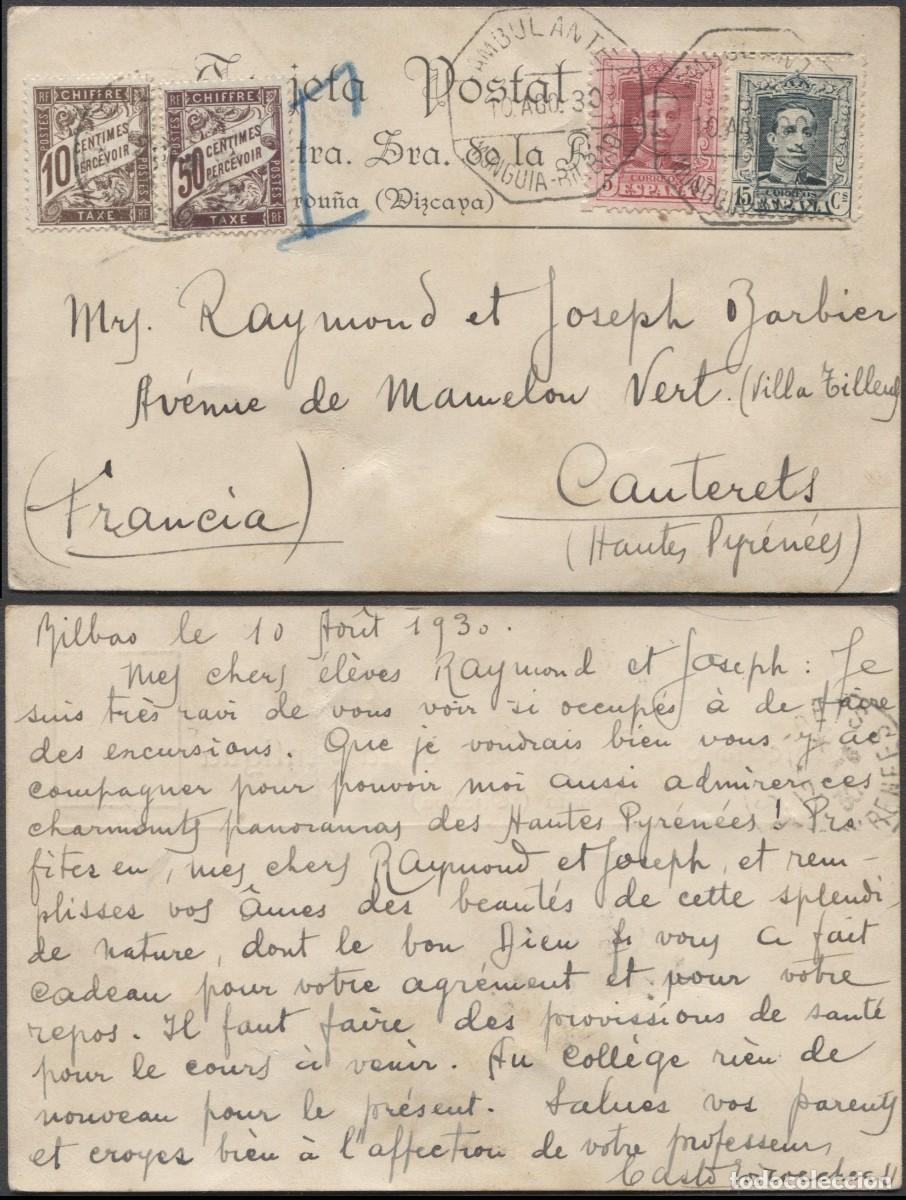 Tarjeta Postal
Ntra. Sra. de la
Orduña (Vizcaya)
RF CHIFFRE
POSTES 10 CENTIMES À PERCEVOIR POSTES
TAXE RF
RF CHIFFRE
POSTES 50 CENTIMES À PERCEVOIR POSTES
TAXE RF
AMBULANTE
10.AGO.30
MUNGUIA-BILBAO
CORREOS
5 ESPAÑA
CORREOS
15 ESPAÑA Cs
T
Mrs. Raymond et Joseph Barbier
Avénue de Mamelon Vert. (Villa Tilleuls
Cauterets
(Francia)
(Hautes Pyrénées)
Bilbao le 10 Août 1930.
Mes chers élèves Raymond et Joseph: Je
suis très ravi de vous voir si occupés à de faire
des excursions. Que je voudrais bien vous y ac
compagner pour pouvoir moi aussi admirer ces
charmants panoramas des Hautes Pyrénées! Pro
fitez en, mes chers Raymond et Joseph, et rem-
plisses vos âmes des beautés de cette splendi
de nature, dont le bon Dieu vous a fait
cadeau pour votre agrément et pour votre
repos. Il faut faire des provissions de santé
pour le cours à venir. Au collège rien de
nouveau pour le présent. Salues vos parents
et croyes bien à l'affection de votre professeur,
todocoleccion.net